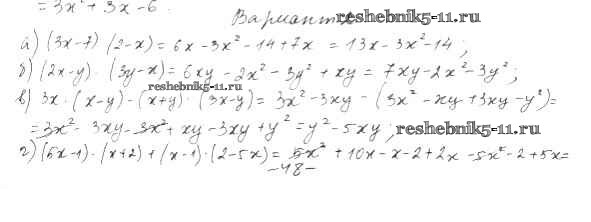 = 3x² + 3x - 6.
Вариант
reshebnik5-11.ru
а) (3x-7)·(2-x) = 6x - 3x² - 14 + 7x = 13x - 3x² - 14;
б) (2x-y)·(3y-x) = 6xy - 2x² - 3y² + xy = 7xy - 2x² - 3y²;
reshebnik5-11.ru
в) 3x·(x-y) - (x+y)·(3x-y) = 3x² - 3xy - (3x² - xy + 3xy - y²) =
= 3x² - 3xy - 3x² + xy - 3xy + y² = y² - 5xy;
reshebnik5-11.ru
г) (5x-1)·(x+2) + (x-1)·(2-5x) = 5x² + 10x - x - 2 + 2x - 5x² - 2 + 5x =
-48-